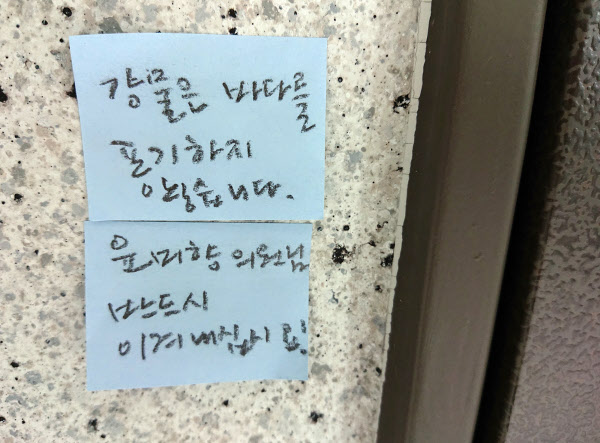 강물은 바다를
포기하지
않습니다.
윤미향 의원님
반드시
이겨내십시오!